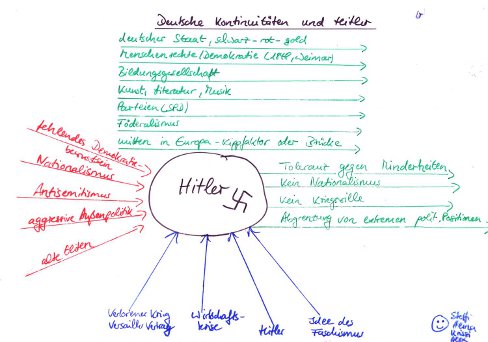 Deutsche Kontinuitäten und Hitler
deutscher Staat, schwarz-rot-gold
Menschenrechte/Demokratie (1848, Weimar)
Bildungsgesellschaft
Kunst, Literatur, Musik
Parteien (SPD)
Föderalismus
mitten in Europa - Kippfaktor oder Brücke
fehlendes Demokratie-
bewusstsein
Nationalismus
Antisemitismus
aggressive Außenpolitik
alte Eliten
Hitler
Toleranz gegen Minderheiten
Kein Nationalismus
Kein Kriegswille
Abgrenzung von extremen polit. Positionen
Verlorener Krieg
Versailler Vertrag
Wirtschafts-
krise
Hitler
Idee des
Faschismus
Steffi